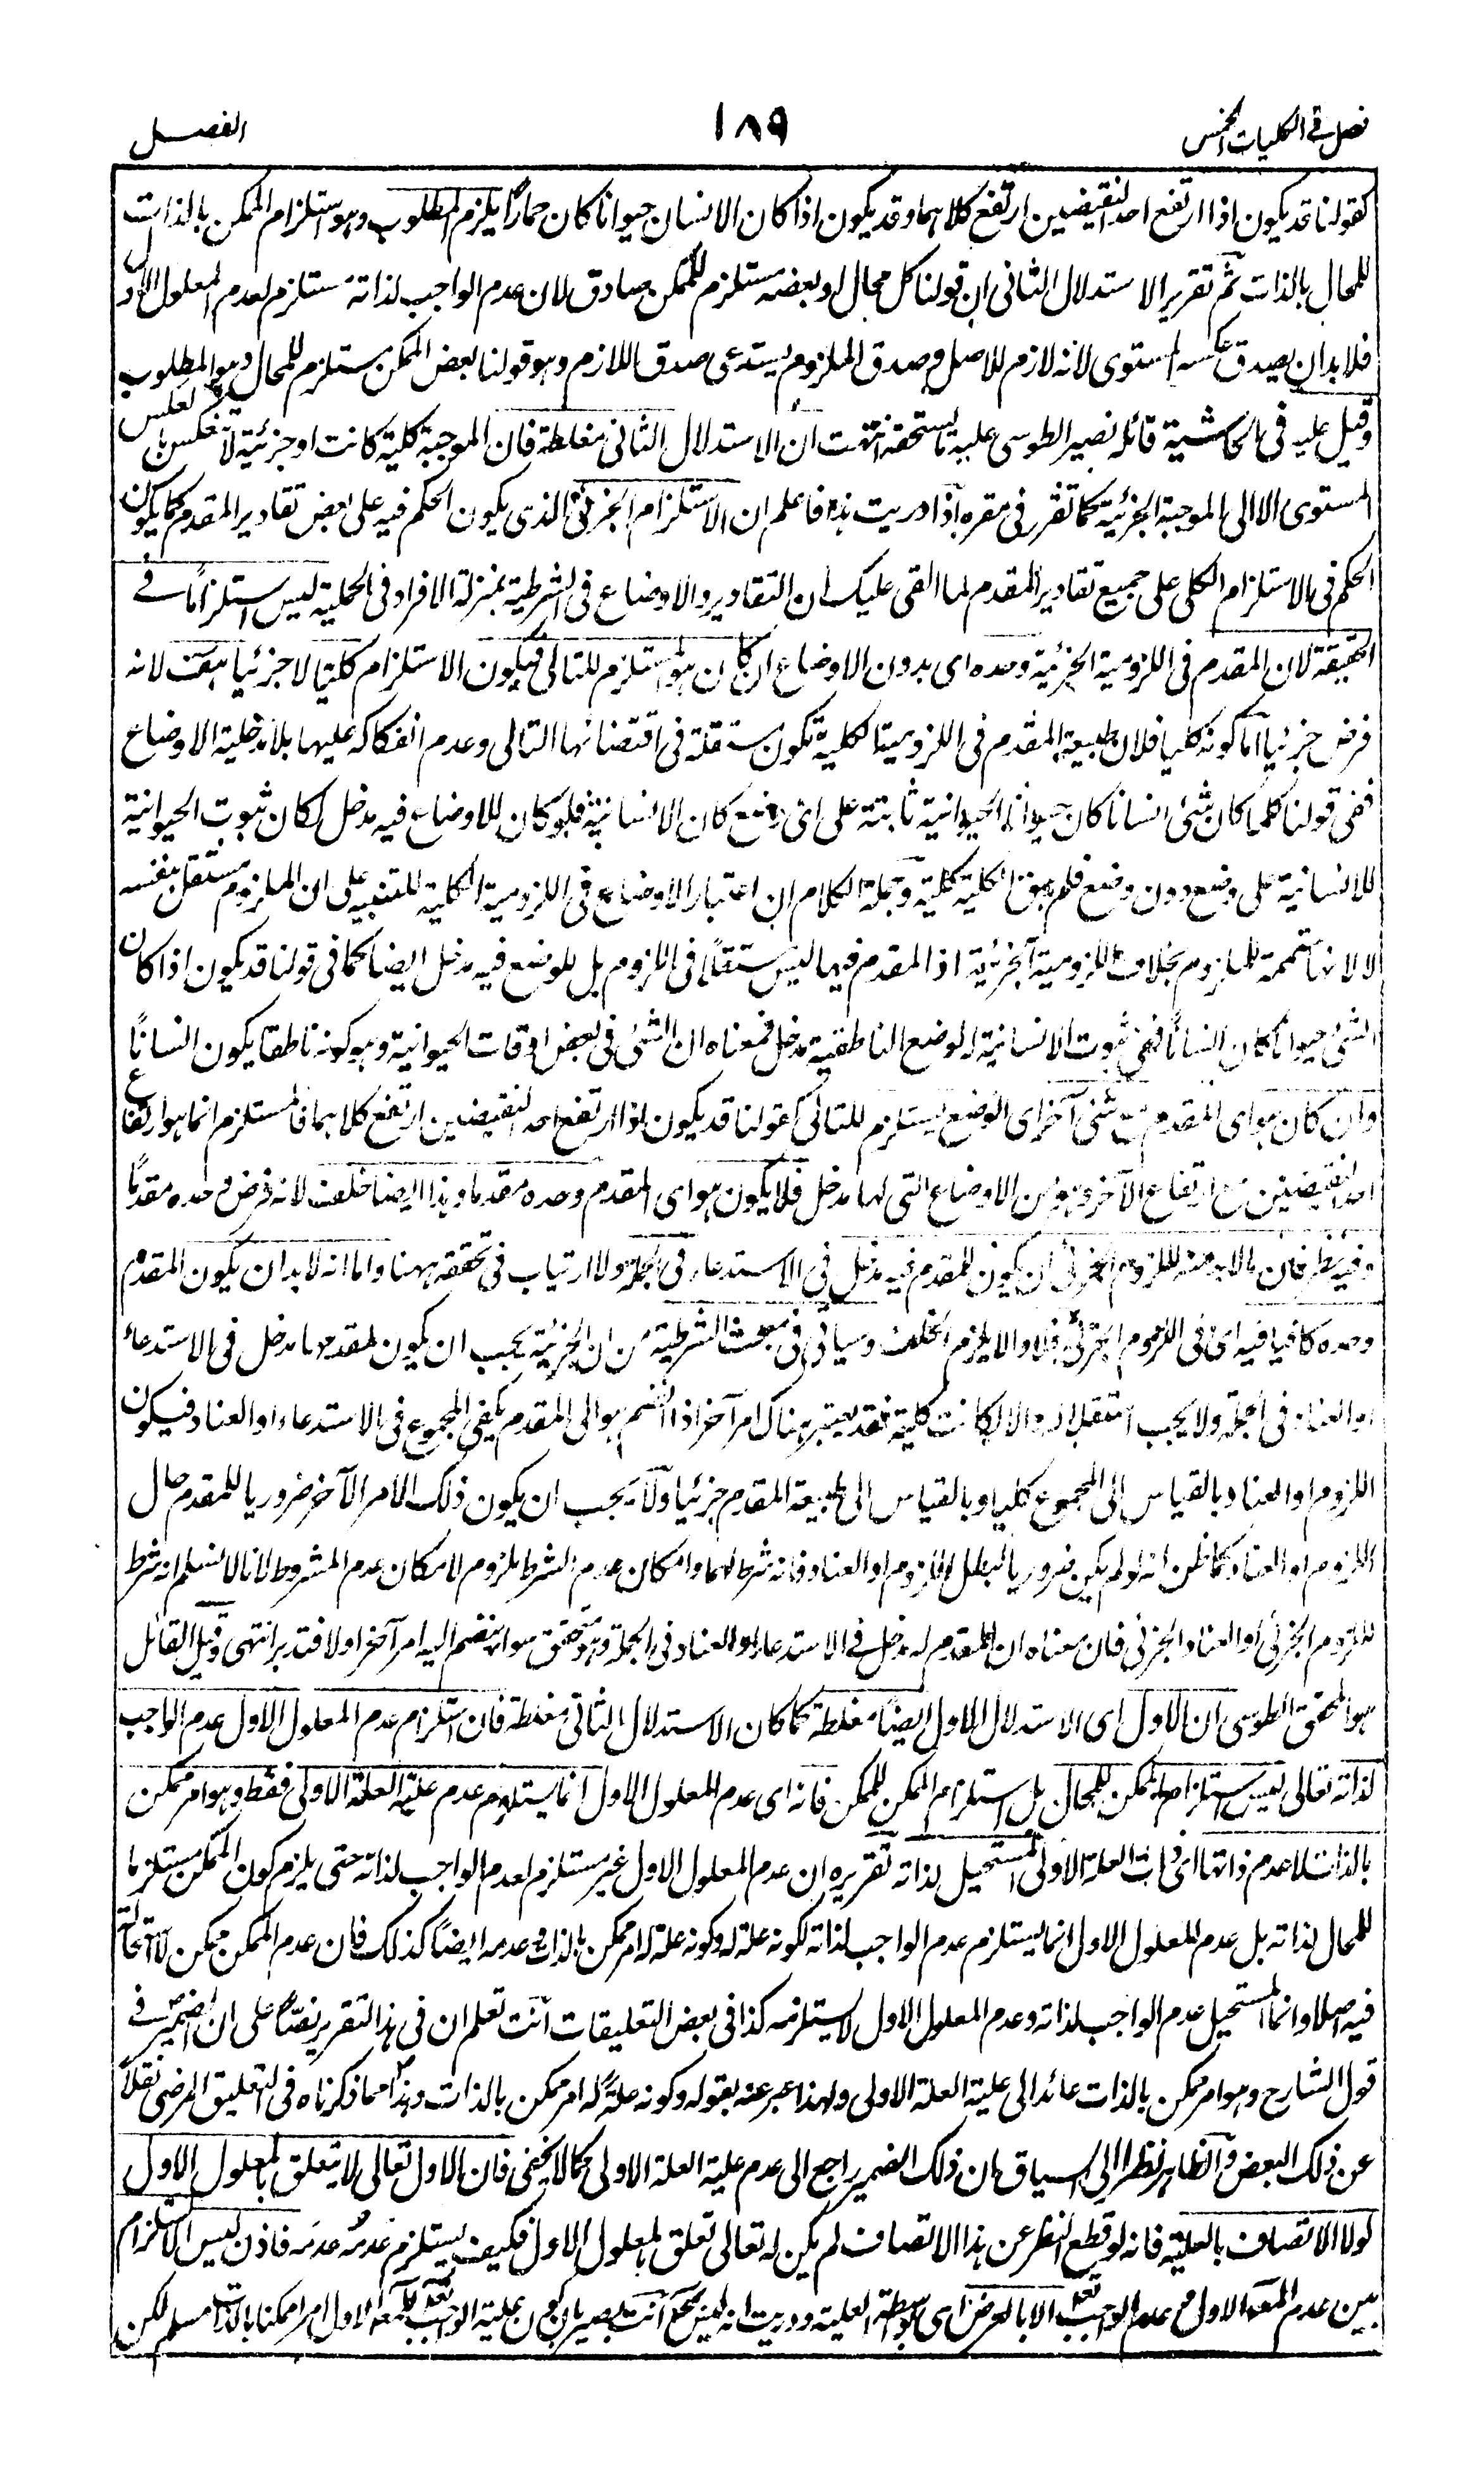 فصل فی الکلیات الخمس
١٨٩
الفصل
کقولنا قد یکون اذا ارتفع احد النقیضین ارتفع کلاهما و قد یکون اذا کان الانسان حیوانا کان حمارا یلزم المطلوب و هو استلزام الممکن بالذات
للمحال بالذات ثم تقریر الاستدلال الثانی ان قولنا کل محال او بعضه مستلزم للممکن صادق لان عدم الواجب لذاته مستلزم لعدم المعلول الاول
فلا بد ان یصدق عکسه المستوی لانه لازم للاصل و صدق الملزوم یستدعی صدق اللازم و هو قولنا بعض الممکن مستلزم للمحال و هو المطلوب
و قیل علیه فی الحاشیة قائله نصیر الطوسی علیه ما یستحقه انتهت ان الاستدلال الثانی مغلطة فان الموجبة کلیة کانت او جزئیة لا تنعکس بالعکس
المستوی الا الی الموجبة الجزئیة کما تقرر فی مقره اذا دریت هذا فاعلم ان الاستلزام الجزئی الذی یکون الحکم فیه علی بعض تقادیر المقدم کما یکون
الحکم فی الاستلزام الکلی علی جمیع تقادیر المقدم لما القی علیک ان التقادیر والاوضاع فی الشرطیة بمنزلة الافراد فی الحملیة لیس استلزاما فی
الحقیقة لان المقدم فی اللزومیة الجزئیة وحده ای بدون الاوضاع ان کان هو المستلزم للتالی فیکون الاستلزام کلیا لا جزئیا هف لانه
فرض جزئیا اما کونه کلیا فلان طبیعة المقدم فی اللزومیة الکلیة تکون مستقلة فی اقتضائها التالی و عدم انفکاکه علیها بلا مدخلیة الاوضاع
ففی قولنا کلما کان شئ انسانا کان حیوانا الحیوانیة ثابتة علی ای وضع کان الانسانیة فلو کان للاوضاع فیه مدخل لکان ثبوت الحیوانیة
للانسانیة علی وضع دون وضع فلم یبق الکلیة کلیة و جملة الکلام ان اعتبار الاوضاع فی اللزومیة الکلیة للتنبیه علی ان الملزوم مستقل بنفسه
لا لانها متممة للملزوم بخلاف اللزومیة الجزئیة اذ المقدم فیها لیس مستقلا فی اللزوم بل للوضع فیه مدخل ایضا کما فی قولنا قد یکون اذا کان
الشئ حیوانا کان انسانا ففی ثبوت الانسانیة له لوضع الناطقیة مدخل فمعناه ان الشئ فی بعض اوقات الحیوانیة و هو کونه ناطقا یکون انسانا
وان کان هو ای المقدم مع شئ آخر ای الوضع یستلزم للتالی کقولنا قد یکون اذا ارتفع احد النقیضین ارتفع کلاهما فالمستلزم انما هو ارتفاع
احد النقیضین مع ارتفاع الآخر و هو من الاوضاع التی لها مدخل فلا یکون هو ای المقدم وحده مقدما و هذا ایضا خلف لانه فرض وحده مقدما
و فیه نظر فان ما لا بد منه للزوم الجزئی ان یکون للمقدم فیه مدخل فی الاستدعاء فی الجملة و لا ارتیاب فی تحققه ههنا و اما انه لا بد ان یکون المقدم
وحده کافیا فیه ای فی اللزوم الجزئی فلا و الا یلزم الخلف و سیأتی فی مبحث الشرطیة من ان الجزئیة یجب ان یکون لمقدمها مدخل فی الاستدعاء
او العناد فی الجملة و لا یجب استقلاله و الا لکانت کلیة فقد یعتبر هناک امر آخر اذا انضم هو الی المقدم یکفی المجموع فی الاستدعاء او العناد فیکون
اللزوم او العناد بالقیاس الی المجموع کلیا و بالقیاس الی طبیعة المقدم جزئیا و لا یجب ان یکون ذلک الامر الآخر ضروریا للمقدم حال
اللزوم او العناد کما ظن انه لو لم یکن ضروریا لبطل اللزوم او العناد فانه شرط لهما و امکان عدم الشرط ملزوم لامکان عدم المشروط لانا لا نسلم انه شرط
للزوم الجزئی او العناد الجزئی فان معناه ان المقدم له مدخل فی الاستدعاء او العناد فی الجملة و هو متحقق سواء ینضم الیه امر آخر او لا فتدبر انتهی و قیل القائل
هو المحقق الطوسی ان الاول ای الاستدلال الاول ایضا مغلطة کما کان الاستدلال الثانی مغلطة فان استلزام عدم المعلول الاول عدم الواجب
لذاته تعالی لیس استلزام الممکن للمحال بل استلزام الممکن للممکن فانه ای عدم المعلول الاول انما یستلزم عدم علیة العلة الاولی فقط و هو امر ممکن
بالذات لا عدم ذاتها ای ذات العلة الاولی المستحیل لذاته تقریره ان عدم المعلول الاول غیر مستلزم لعدم الواجب لذاته حتی یلزم کون الممکن مستلزما
للمحال لذاته بل عدم المعلول الاول انما یستلزم عدم الواجب لذاته لکونه علة له و کونه علة له امر ممکن بالذات و عدمه ایضا کذلک فان عدم الممکن ممکن لا استحالة
فیه اصلا و انما المستحیل عدم الواجب لذاته و عدم المعلول الاول لا یستلزمه کذا فی بعض التعلیقات انت تعلم ان فی هذا التقریر نصا علی ان الضمیر فی
قول الشارح و هو امر ممکن بالذات عائد الی علیة العلة الاولی و لهذا عبر عنه بقوله و کونه علة له امر ممکن بالذات و هذا مما ذکرناه فی التعلیق المرضی نقلا
عن ذلک البعض و الظاهر نظرا الی السیاق ان ذلک الضمیر راجع الی عدم علیة العلة الاولی کما لا یخفی فان الاول تعالی لا یتعلق بالمعلول الاول
لولا الاتصاف بالعلیة فانه لو قطع النظر عن هذا الاتصاف لم یکن له تعالی تعلق بالمعلول الاول فکیف یستلزم عدمه عدمه فاذن لیس الاستلزام
بین عدم المعلول الاول و عدم الواجب تعالی الا بالعرض ای بواسطة العلیة و دریت انه لیس بمحال انت بصیر بان کون علیة الواجب تعالی للمعلول الاول امرا ممکنا بالذات مسلم لکن